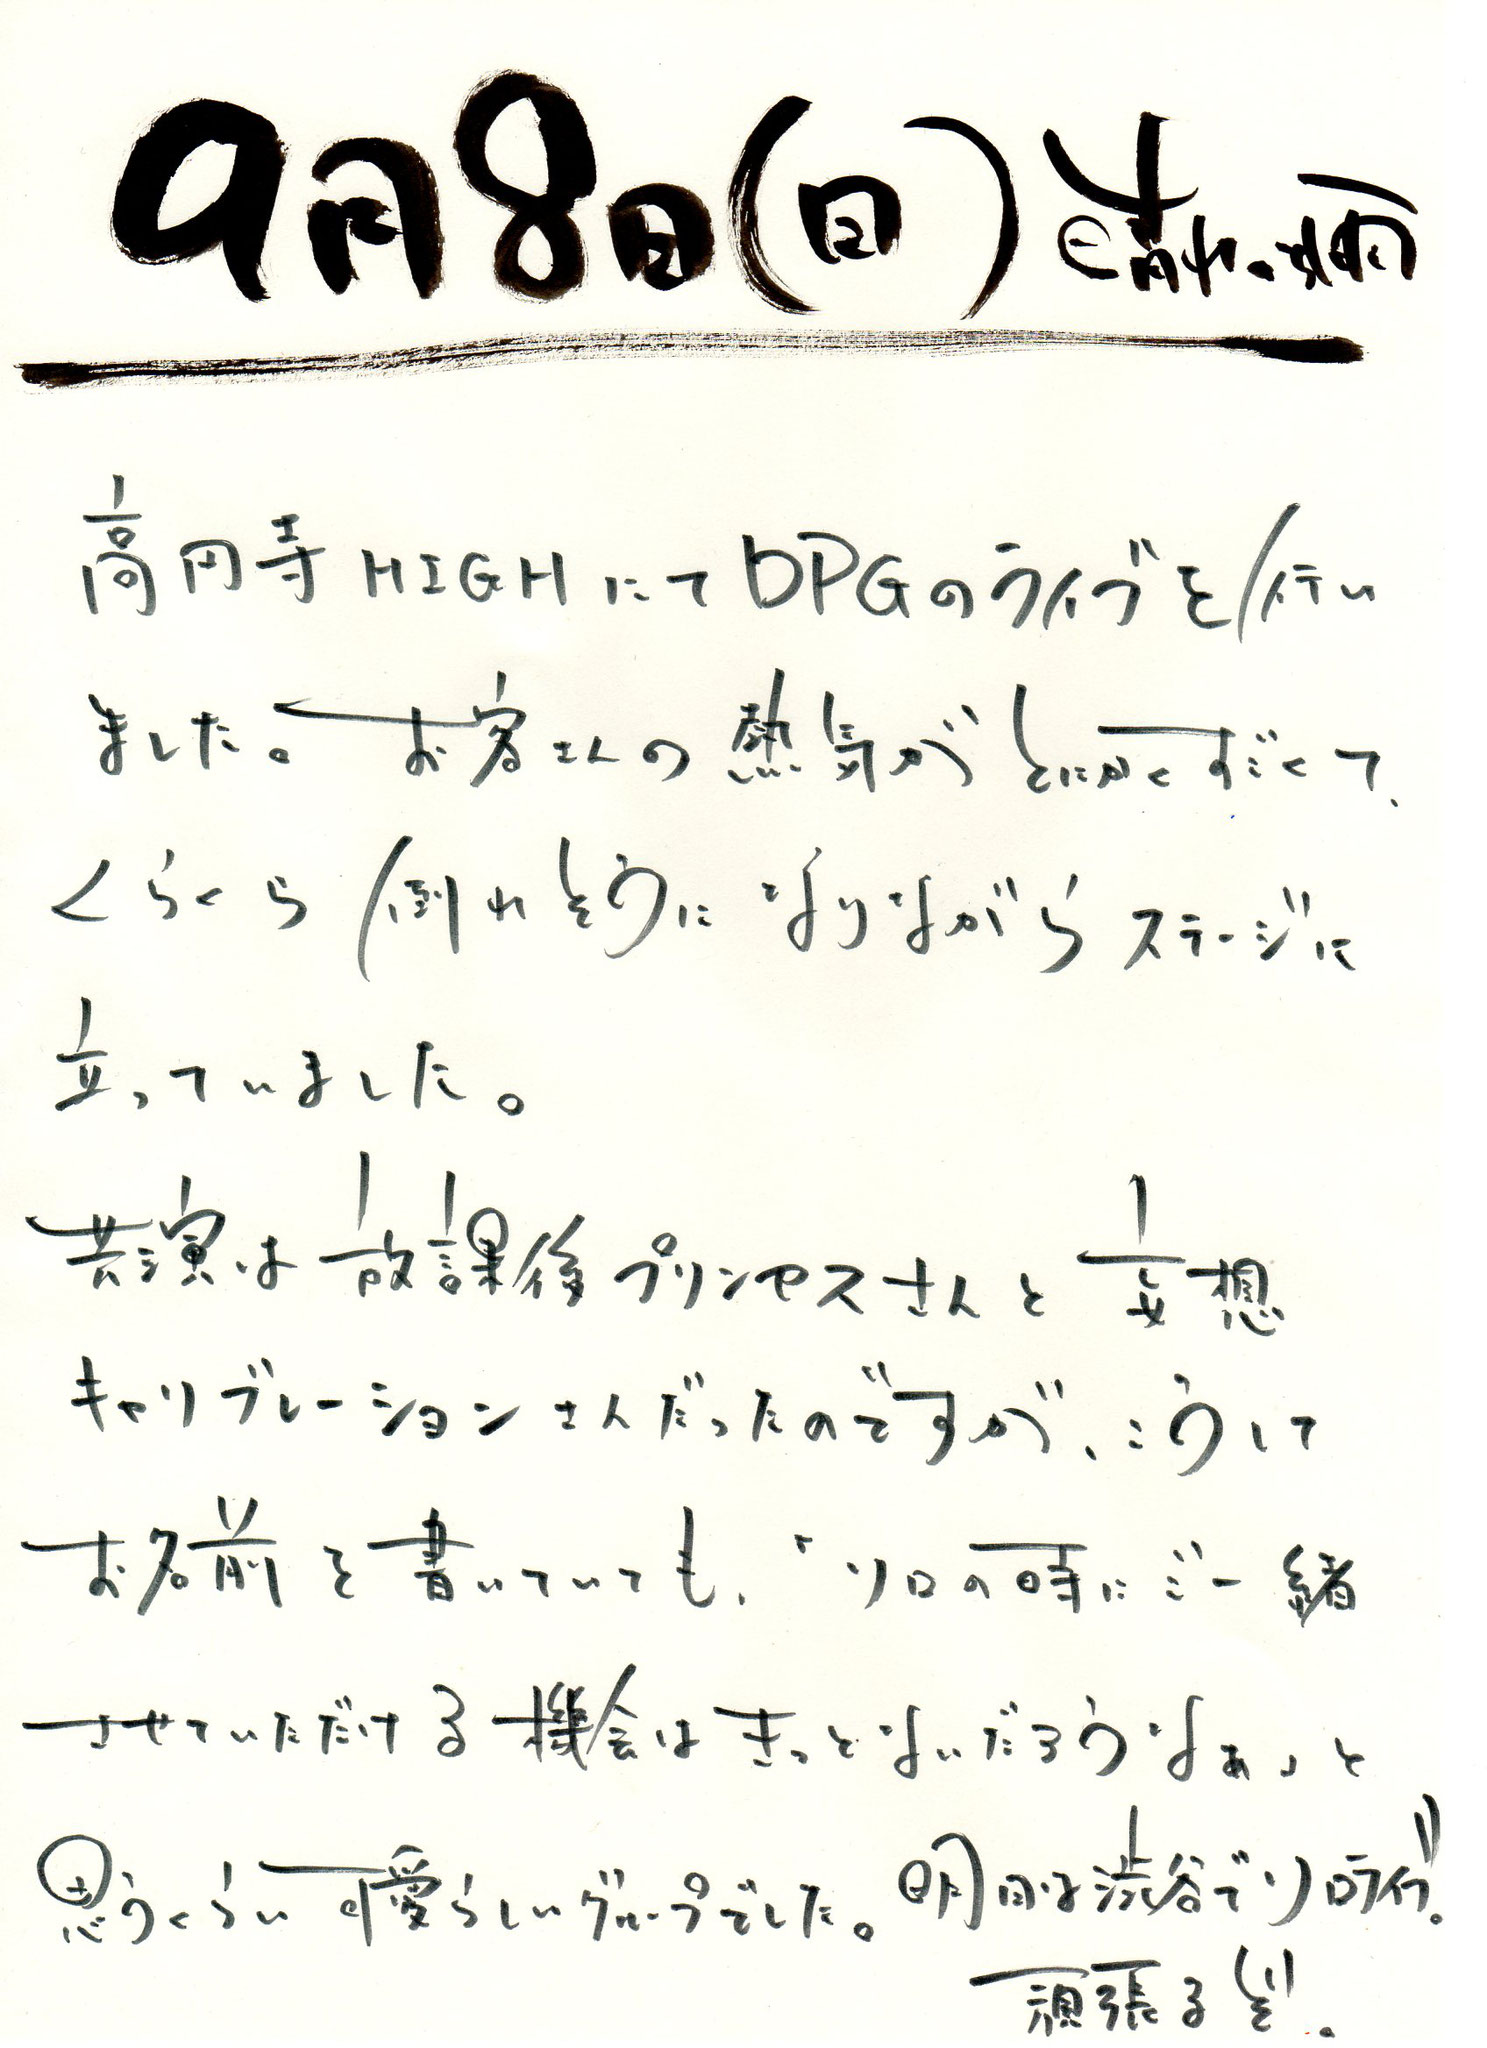 9月8日(日) 晴れのち雨
高円寺HIGHにてDPGのライブを行い
ました。お客さんの熱気がとにかくすごくて、
くらくら倒れそうになりながらステージに
立っていました。
共演は放課後プリンセスさんと妄想
キャリブレーションさんだったのですが、こうして
お名前を書いていても、「ソロの時にご一緒
させていただける機会はきっとないだろうなぁ」と
思うくらい可愛らしいグループでした。明日は渋谷でソロライブ。
頑張るぞ。